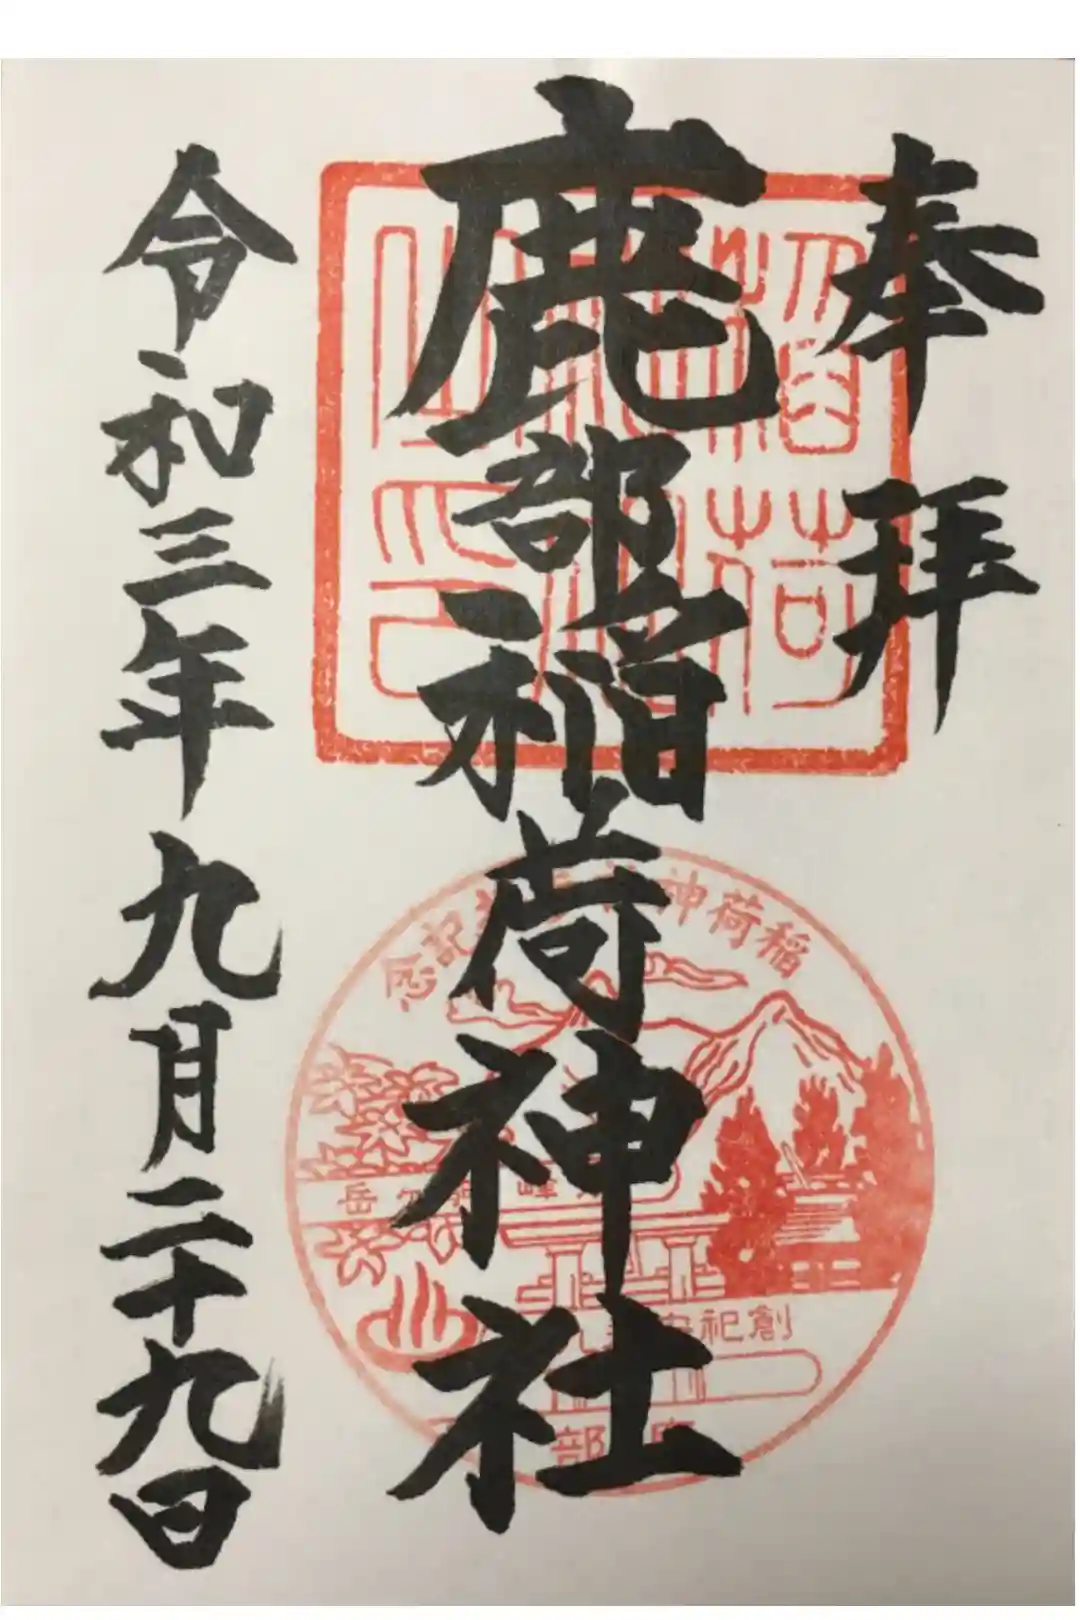 奉拝
鹿部稲荷神社
令和三年九月二十九日
稲荷神社
稲荷神 記念
岳 峰
創祀
鹿部